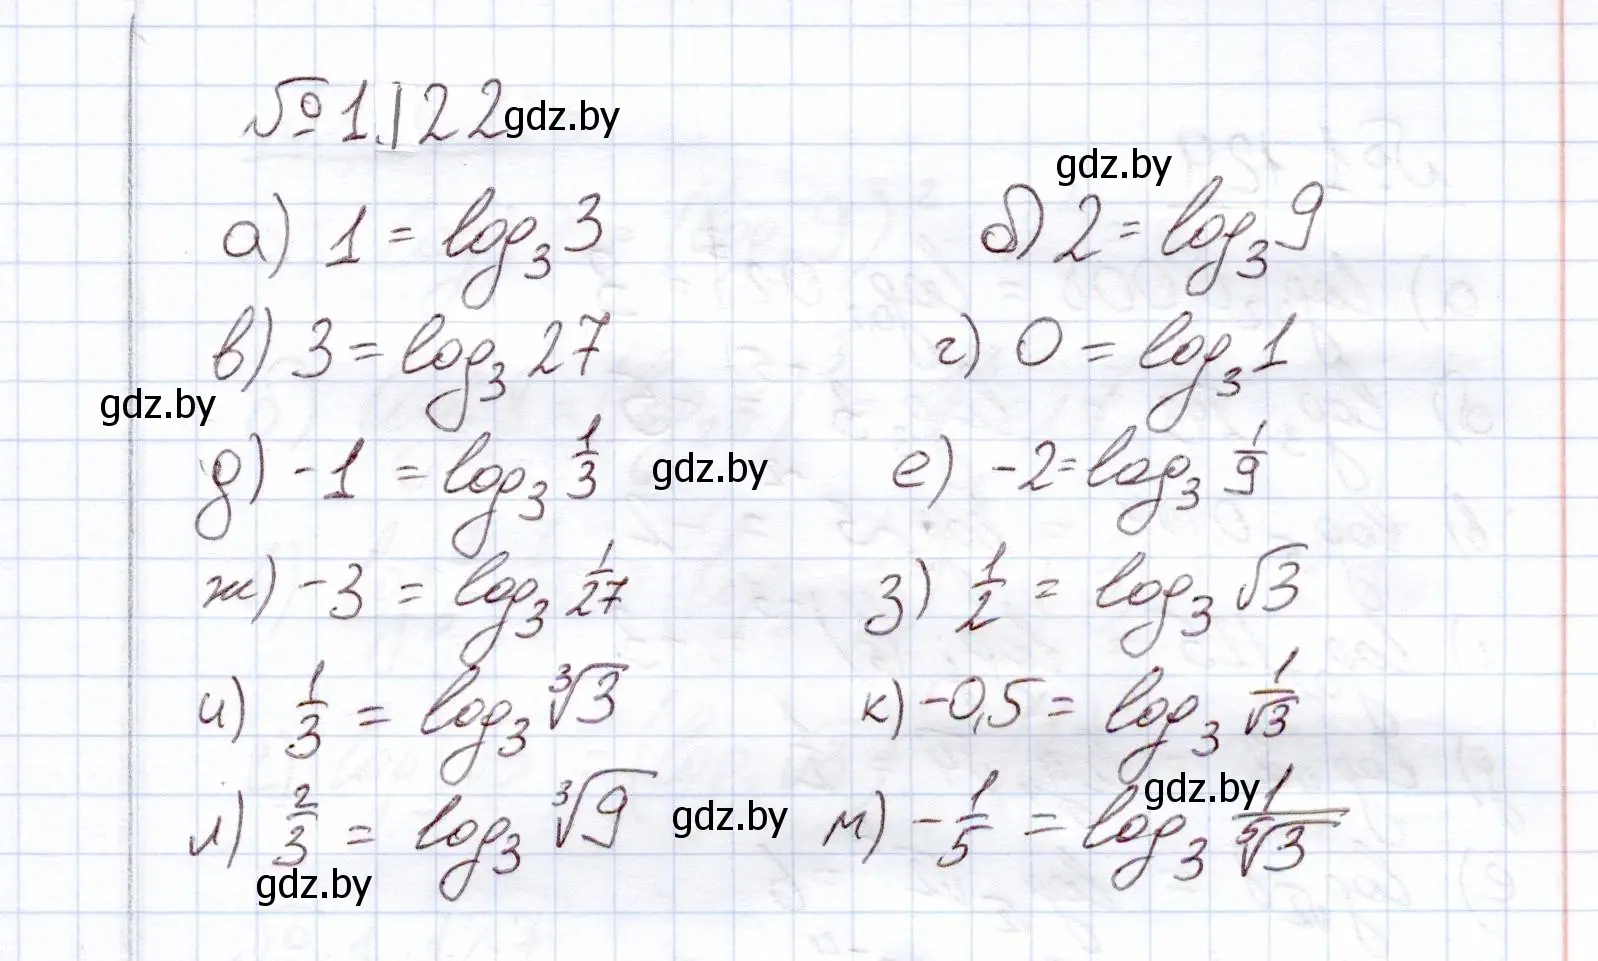 № 1.122 gdz.by
gdz.by
а) 1 = log₃ 3 б) 2 = log₃ 9
в) 3 = log₃ 27 г) 0 = log₃ 1
gdz.by
д) -1 = log₃ 1/3 gdz.by е) -2 = log₃ 1/9
ж) -3 = log₃ 1/27 з) 1/2 = log₃ √3
и) 1/3 = log₃ ³√3 к) -0,5 = log₃ 1/√3
gdz.by
л) 2/3 = log₃ ³√9 gdz.by м) -1/5 = log₃ 1/⁵√3
gdz.by